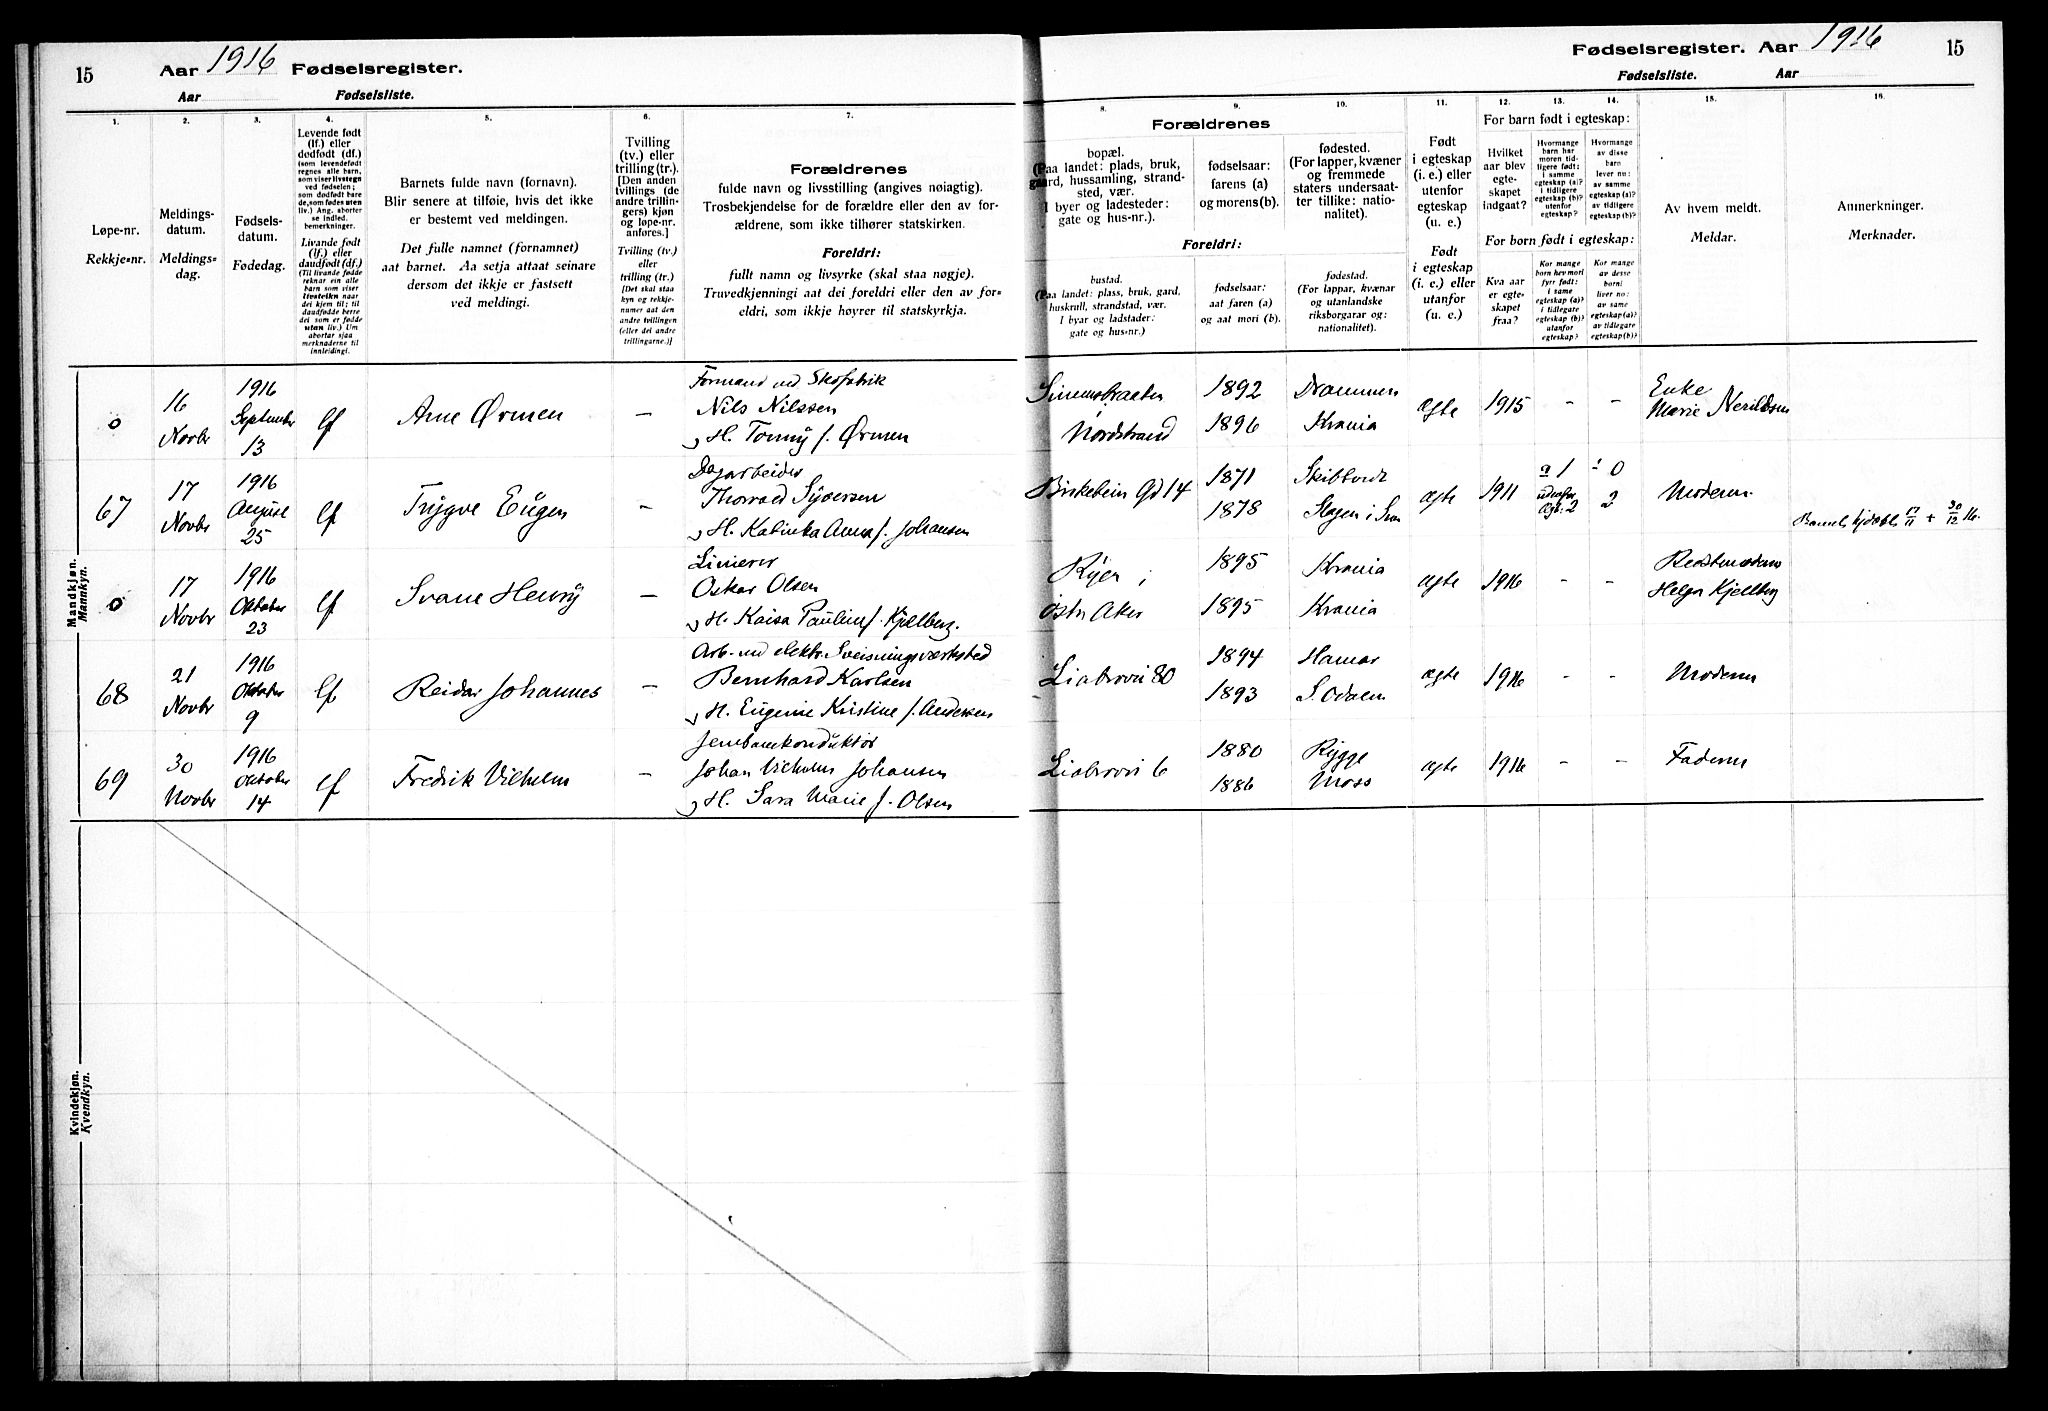 15 Aar 1916 Fødselsregister.
Aar Fødselsliste.
1. 2. 3. 4. 5. 6. 7.
Løpe-nr.
Rekkje-nr.
Meldings-
datum.
Meldings-
dag.
Fødsels-
datum.
Fødedag.
Levende født
(lf.) eller
dødfødt (df.)
(som levendefødt
regnes alle barn,
som viser livstegn
ved fødselen;
som dødfødt bare
de, som fødes uten
liv.) Ang. aborter
se indled.
bemerkninger.
Livande født
(lf.) eller
daudfødt (df.)
(Til livande fødde
reknar ein alle
barn som viser
livsteikn naar
dei kjem til; til
daudfødde berre
dei som er fødde
utan liv.) Um
abortar sjaa
merknaderne til
innleidingi.
Barnets fulde navn (fornavn).
Blir senere at tilføie, hvis det ikke
er bestemt ved meldingen.
Det fulle namnet (fornamnet)
aat barnet. Aa setja attaat seinare
dersom det ikkje er fastsett
ved meldingi.
Tvilling
(tv.) eller
trilling (tr.).
[Den anden
tvillings (de
andre trillin-
gers) kjøn
og løpe-nr.
anføres.]
Tvilling (tv.)
eller
trilling (tr.)
[Det skal staa
kyn og rekkje-
numer aat den
andre tvillingen
(eller dei andre
trillingarne.)]
Forældrenes
fulde navn og livsstilling (angives nøiagtig).
Trosbekjendelse for de forældre eller den av for-
ældrene, som ikke tilhører statskirken.
Foreldri:
fullt namn og livsyrke (skal staa nøgje).
Truvedkjenningi aat dei foreldri eller den av for-
eldri, som ikkje høyrer til statskyrkja.
Mandkjøn.
Mannkyn.
0 16 Novbr 1916 September 13 lf Arne Ørmen —
Formand ved Skofabrik
Nils Nilssen
H. Tonny f. Ørmen
67 17 Novbr 1916 August 25 lf Trygve Eugen —
Dagarbeider
Thorvald Syversen
H. Katinka Anna f. Johansen
0 17 Novbr 1916 Oktober 23 lf Svane Henry —
Oskar Olsen
H. Kaisa Pauline f. Kjellberg.
68 21 Novbr 1916 Oktober 9 lf Reidar Johannes —
Arb. ved elektr. Sveisningsværksted
Bernhard Karlsen
H. Eugenie Kristine f. Andersen
69 30 Novbr 1916 Oktober 14 lf Fredrik Vilhelm —
Jernbanekonduktør
Johan Vilhelm Johansen
H. Sara Marie f. Olsen
Kvindekjøn.
Kvendkyn.
Fødselsregister. Aar 1916 15
Fødselsliste. Aar
8. 9. 10. 11. 12. 13. 14. 15. 16.
Forældrenes
bopæl.
(Paa landet: plads, bruk,
gaard, hussamling, strand-
sted, vær.
I byer og ladesteder:
gate og hus-nr.).
fødselsaar:
farens (a)
og morens (b).
fødested.
(For lapper, kvæner
og fremmede
staters undersaat-
ter tillike: natio-
nalitet).
Foreldri:
bustad.
(Paa landet: plass, bruk, gard,
huskrull, strandstad, vær.
I byar og ladstader:
gate og hus-nr.)
fødselsaar:
aat faren (a)
og aat mori (b).
fødestad.
(For lappar, kvænar
og utanlandske
riksborgarar og:
nationalitet).
Født
i egteskap
(i. e.) eller
utenfor
egteskap
(u. e.)
Født
i egteskap
(i. e.) eller
utanfor
(u. e.)
For barn født i egteskap:
Hvilket
aar blev
egte-
skapet
indgaat?
Hvormange
barn har
moren tid-
ligere født:
i samme
egteskap (a)?
i tidligere
egteskap (b)?
utenfor
egteskap?
Hvormange
av disse
barn
lever nu:
av samme
egteskap (a)?
av tidligere
egteskap (b)?
For born født i egteskap:
Kva aar
er egte-
skapet
fraa?
Kor mange
born hev mori
fyrr født:
i same
egteskap (a)?
i tidlegare
egteskap (b)?
utanfor
egteskap?
Kor mange
av desse
born:
liver no:
av same
egteskap (a)?
av tidlegare
egteskap (b)?
Av hvem meldt.
Meldar.
Anmerkninger.
Merknader.
Nordstrand 1892 1896 Drammen Krania ægte 1915 - - Enke Marie
Birkebein Gd 14 1871 1878 ægte 1911 a 1 2 0 2 Moderen
Ryen i Østr. Aker 1895 1895 Krania Krania ægte 1916 - - Helga Kjellberg
Liabrovei 80 1894 1893 Hamar S. Odalen ægte 1916 - - Moderen
Liabrovei 6 1880 1886 Rygge Moss ægte 1916 - - Faderen